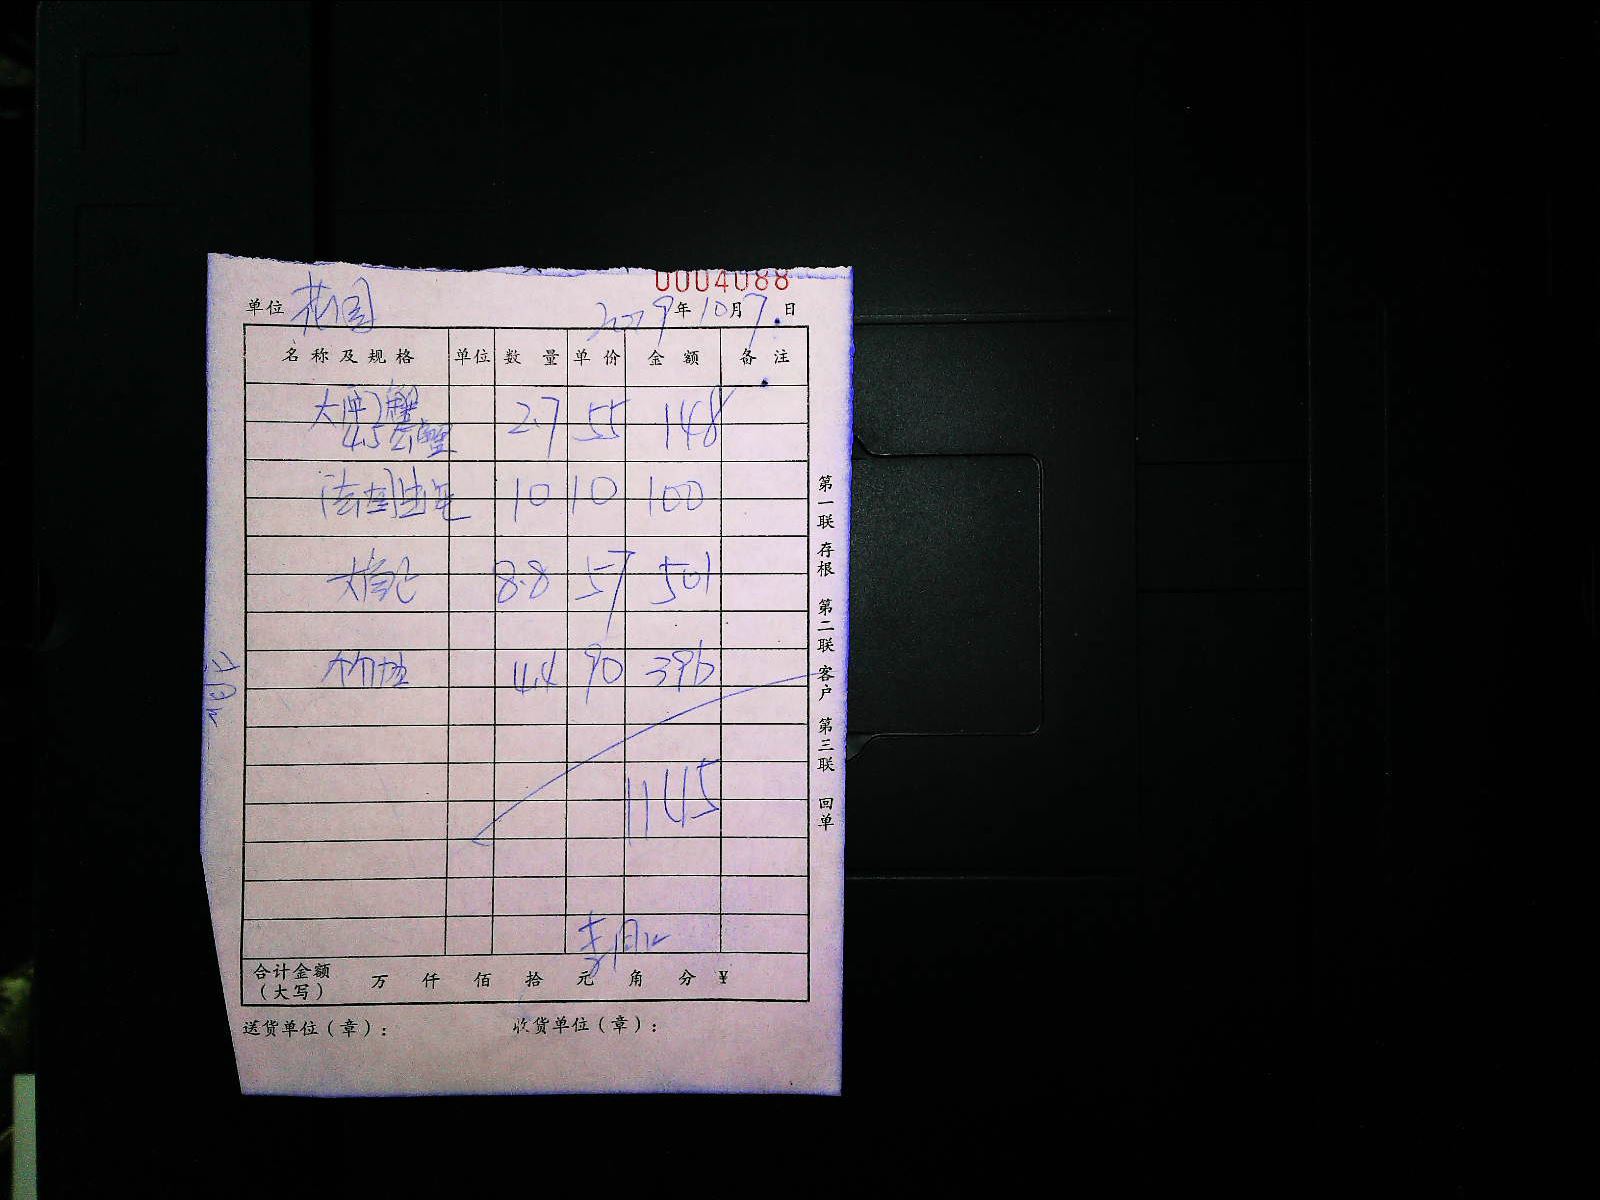 0004088
单位 花园 2019年10月7日
名称及规格 单位 数量 单价 金额 备注
大闸蟹 2.7 55 148
4.5公
法国生蚝 10 10 100
8.8 57 501
4.4 90 396
1145
合计金额 万 仟 佰 拾 元 角 分 ¥
（大写）
送货单位（章）： 收货单位（章）：
第一联 存根 第二联 客户 第三联 回单